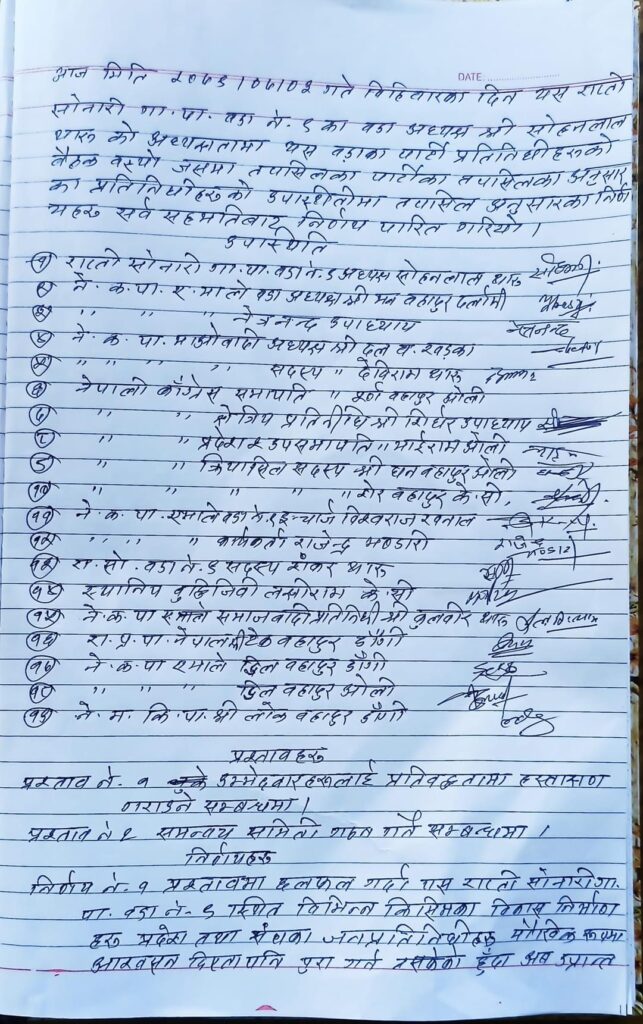 DATE:
आज मिति २०७९।०७।०३ गते विहिवारका दिन यस राप्ती
सोनारी गा.पा. वडा नं. ९ का वडा अध्यक्ष श्री सोहनलाल
थारु को अध्यक्षतामा यस वडाका पार्टी प्रतिनिधीहरुको
बैठक वस्यो जसमा तपासिलका पार्टीका तपासिलका अनुसार
का प्रतिनिधीहरुको उपास्थीतीमा तपासिल अनुसारका निर्ण
यहरु सर्व सहमतिबाट निर्णय पारित गरियो ।
उपास्थिति
१ राप्ती सोनारी गा.पा. वडा नं. ९ अध्यक्ष सोहनलाल थारु
२ ने. क. पा. ए. माले वडा अध्यक्ष श्री मन वहादुर दर्लामी
३ " " " नेत्रनन्द उपाध्याय
४ ने. क. पा. माओवादी अध्यक्ष श्री दल व. खड्का
५ " " " सदस्य " देविराम थारु
६ नेपाली काँग्रेस सभापति " वहादुर ओली
७ " " क्षेत्रिय प्रतिनीधि श्री उपाध्याय
८ " " प्रदेश २ उपसभापति " भाईराम ओली
९ " " क्रियासिल सदस्य श्री धन वहादुर ओली
१० " " " " " शेर वहादुर के.सी.
११ ने. क. पा. एमाले वडा नं. ९ इन्चार्ज विश्वराज खनाल
१२ " " " " कार्यकर्ता राजेन्द्र भण्डारी
१३ रा. सो. वडा नं. ९ सदस्य शंकर थारु
१४ स्थानिय वुद्धिजिवी लक्षीराम के.सी
१५ ने. क. पा एमाले समाजवादी प्रतिनिधी श्री कुलवीर थारु
१६ रा. प्र. पा. नेपाल श्री टेक वहादुर डाँगी
१७ ने. क. पा एमाले दिल वहादुर डाँगी
१८ " " " दिल वहादुर ओली
१९ ने. म. कि. पा. श्री लोक वहादुर डाँगी
प्रस्तावहरु
प्रस्ताव नं. १ उम्मेदवारहरुलाई प्रतिवद्धतामा हस्ताक्षर
गराउने सम्बन्धमा ।
प्रस्ताव नं २ समन्वय समिती गठन गर्ने सम्बन्धमा ।
निर्णयहरु
निर्णय नं. १ प्रस्तावमा छलफल गर्दा यस राप्ती सोनारी गा.
पा. वडा नं. ९ स्थित विभिन्न किसिमका विकास निर्माण
हरु प्रदेश तथा संघका जनप्रतिनिधीहरु मौखिक रूपमा
आस्वासन दिएतापनि पुरा गर्न नसकेको हुँदा अव उप्रान्त